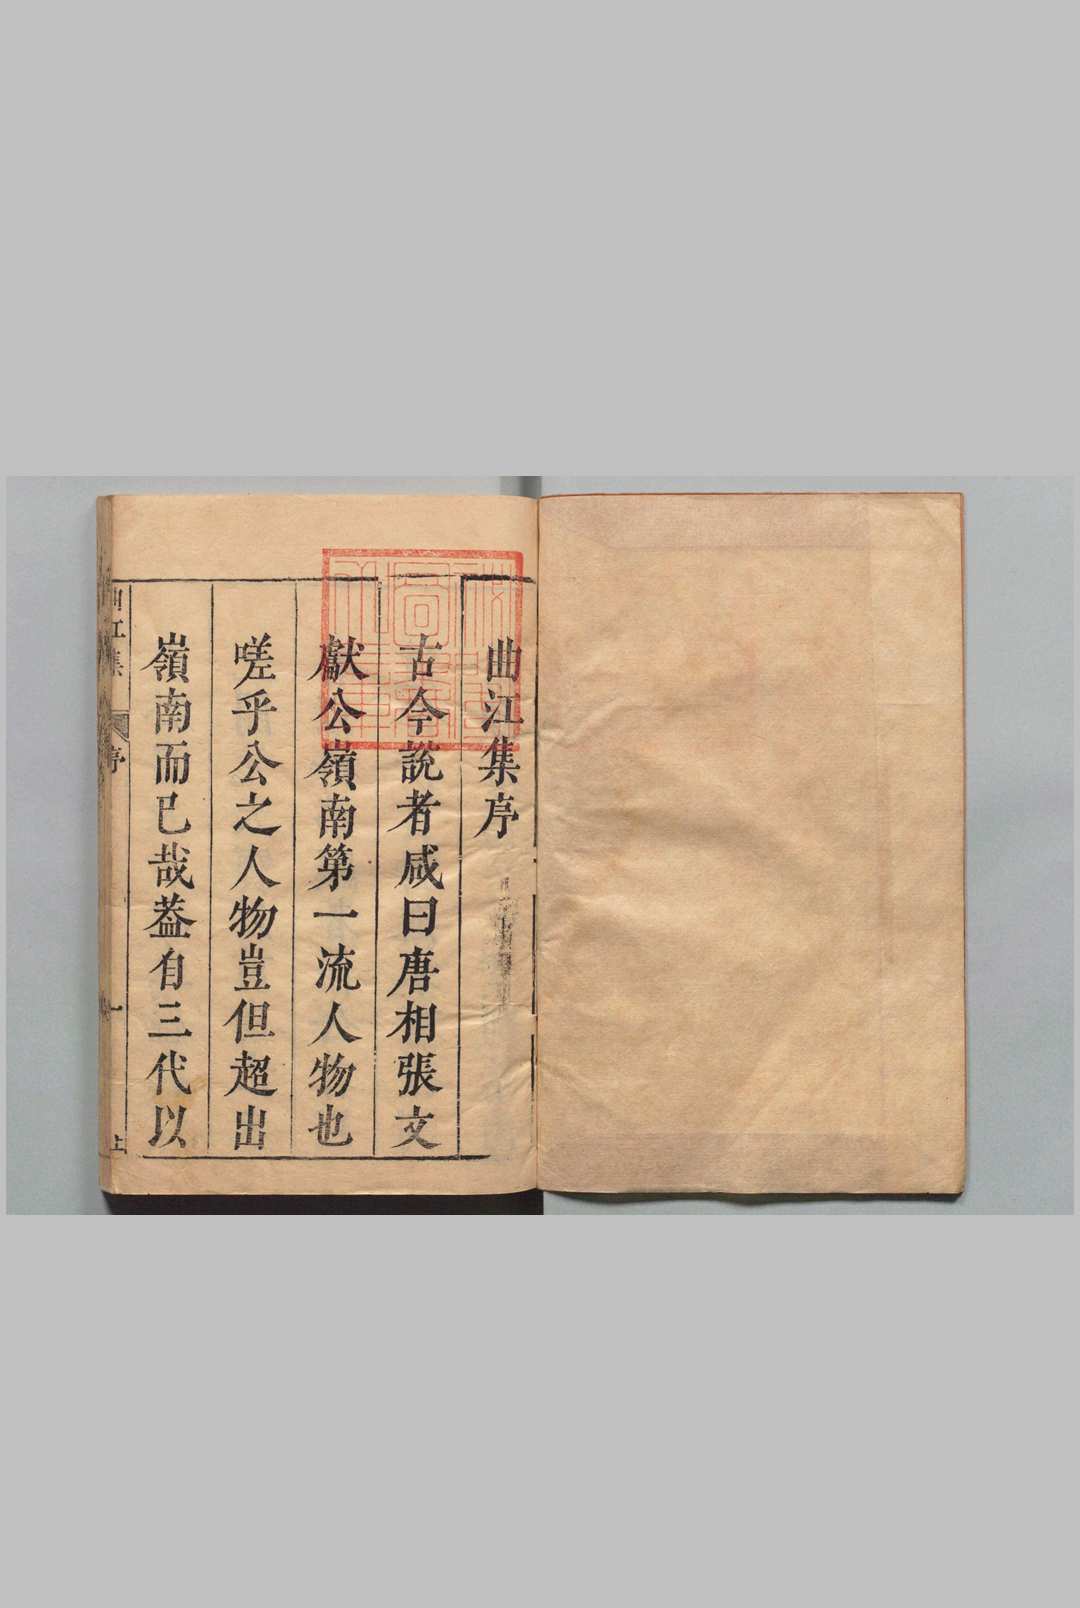 曲江集序
古今説者咸曰唐相張文
獻公嶺南第一流人物也
嗟乎公之人物豈但超出
嶺南而已哉葢自三代以
曲江集 序 一 上